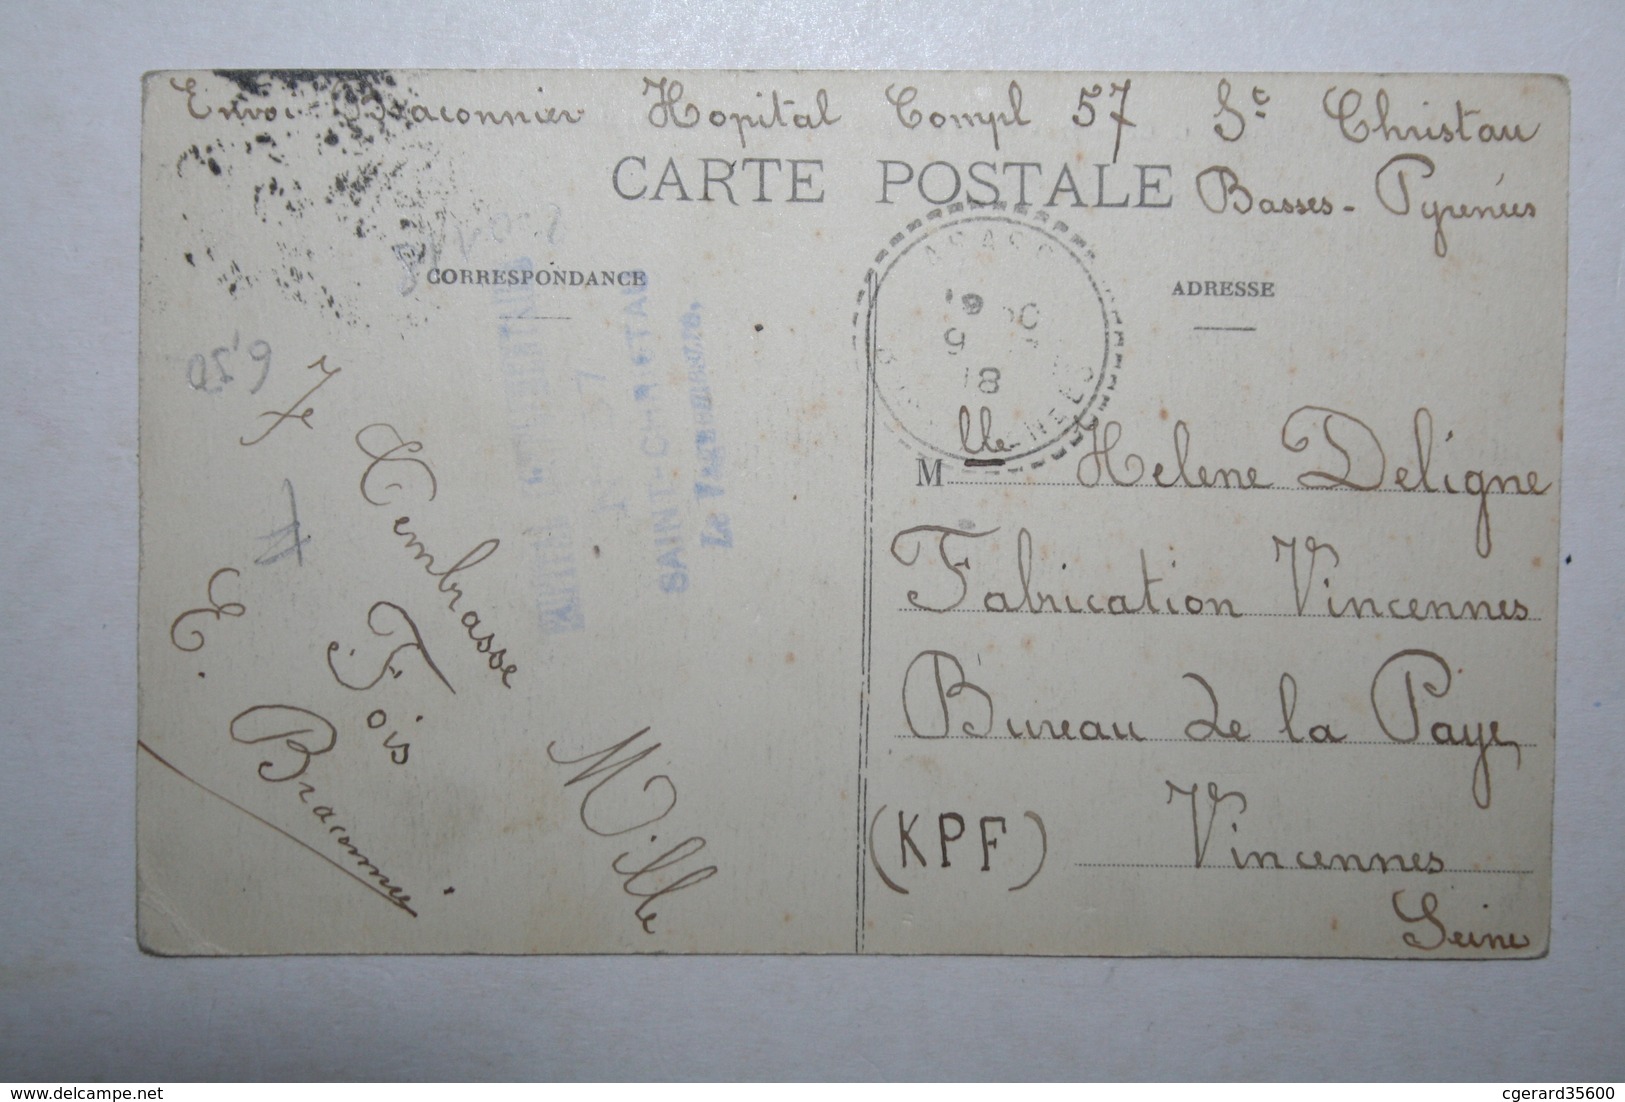 Envoi Braconnier Hopital Compl 57 St Christau
Basses-Pyrenées
CARTE POSTALE
CORRESPONDANCE
ADRESSE
6,50
Je
t'embrasse
Mille
Fois
E. Braconnier
SAINT-CHRISTAU
Le
57
ASASP
18
Mlle Helene Deligne
Fabrication Vincennes
Bureau de la Paye
(KPF) Vincennes
Seine
delcampe.net
cgerard35600